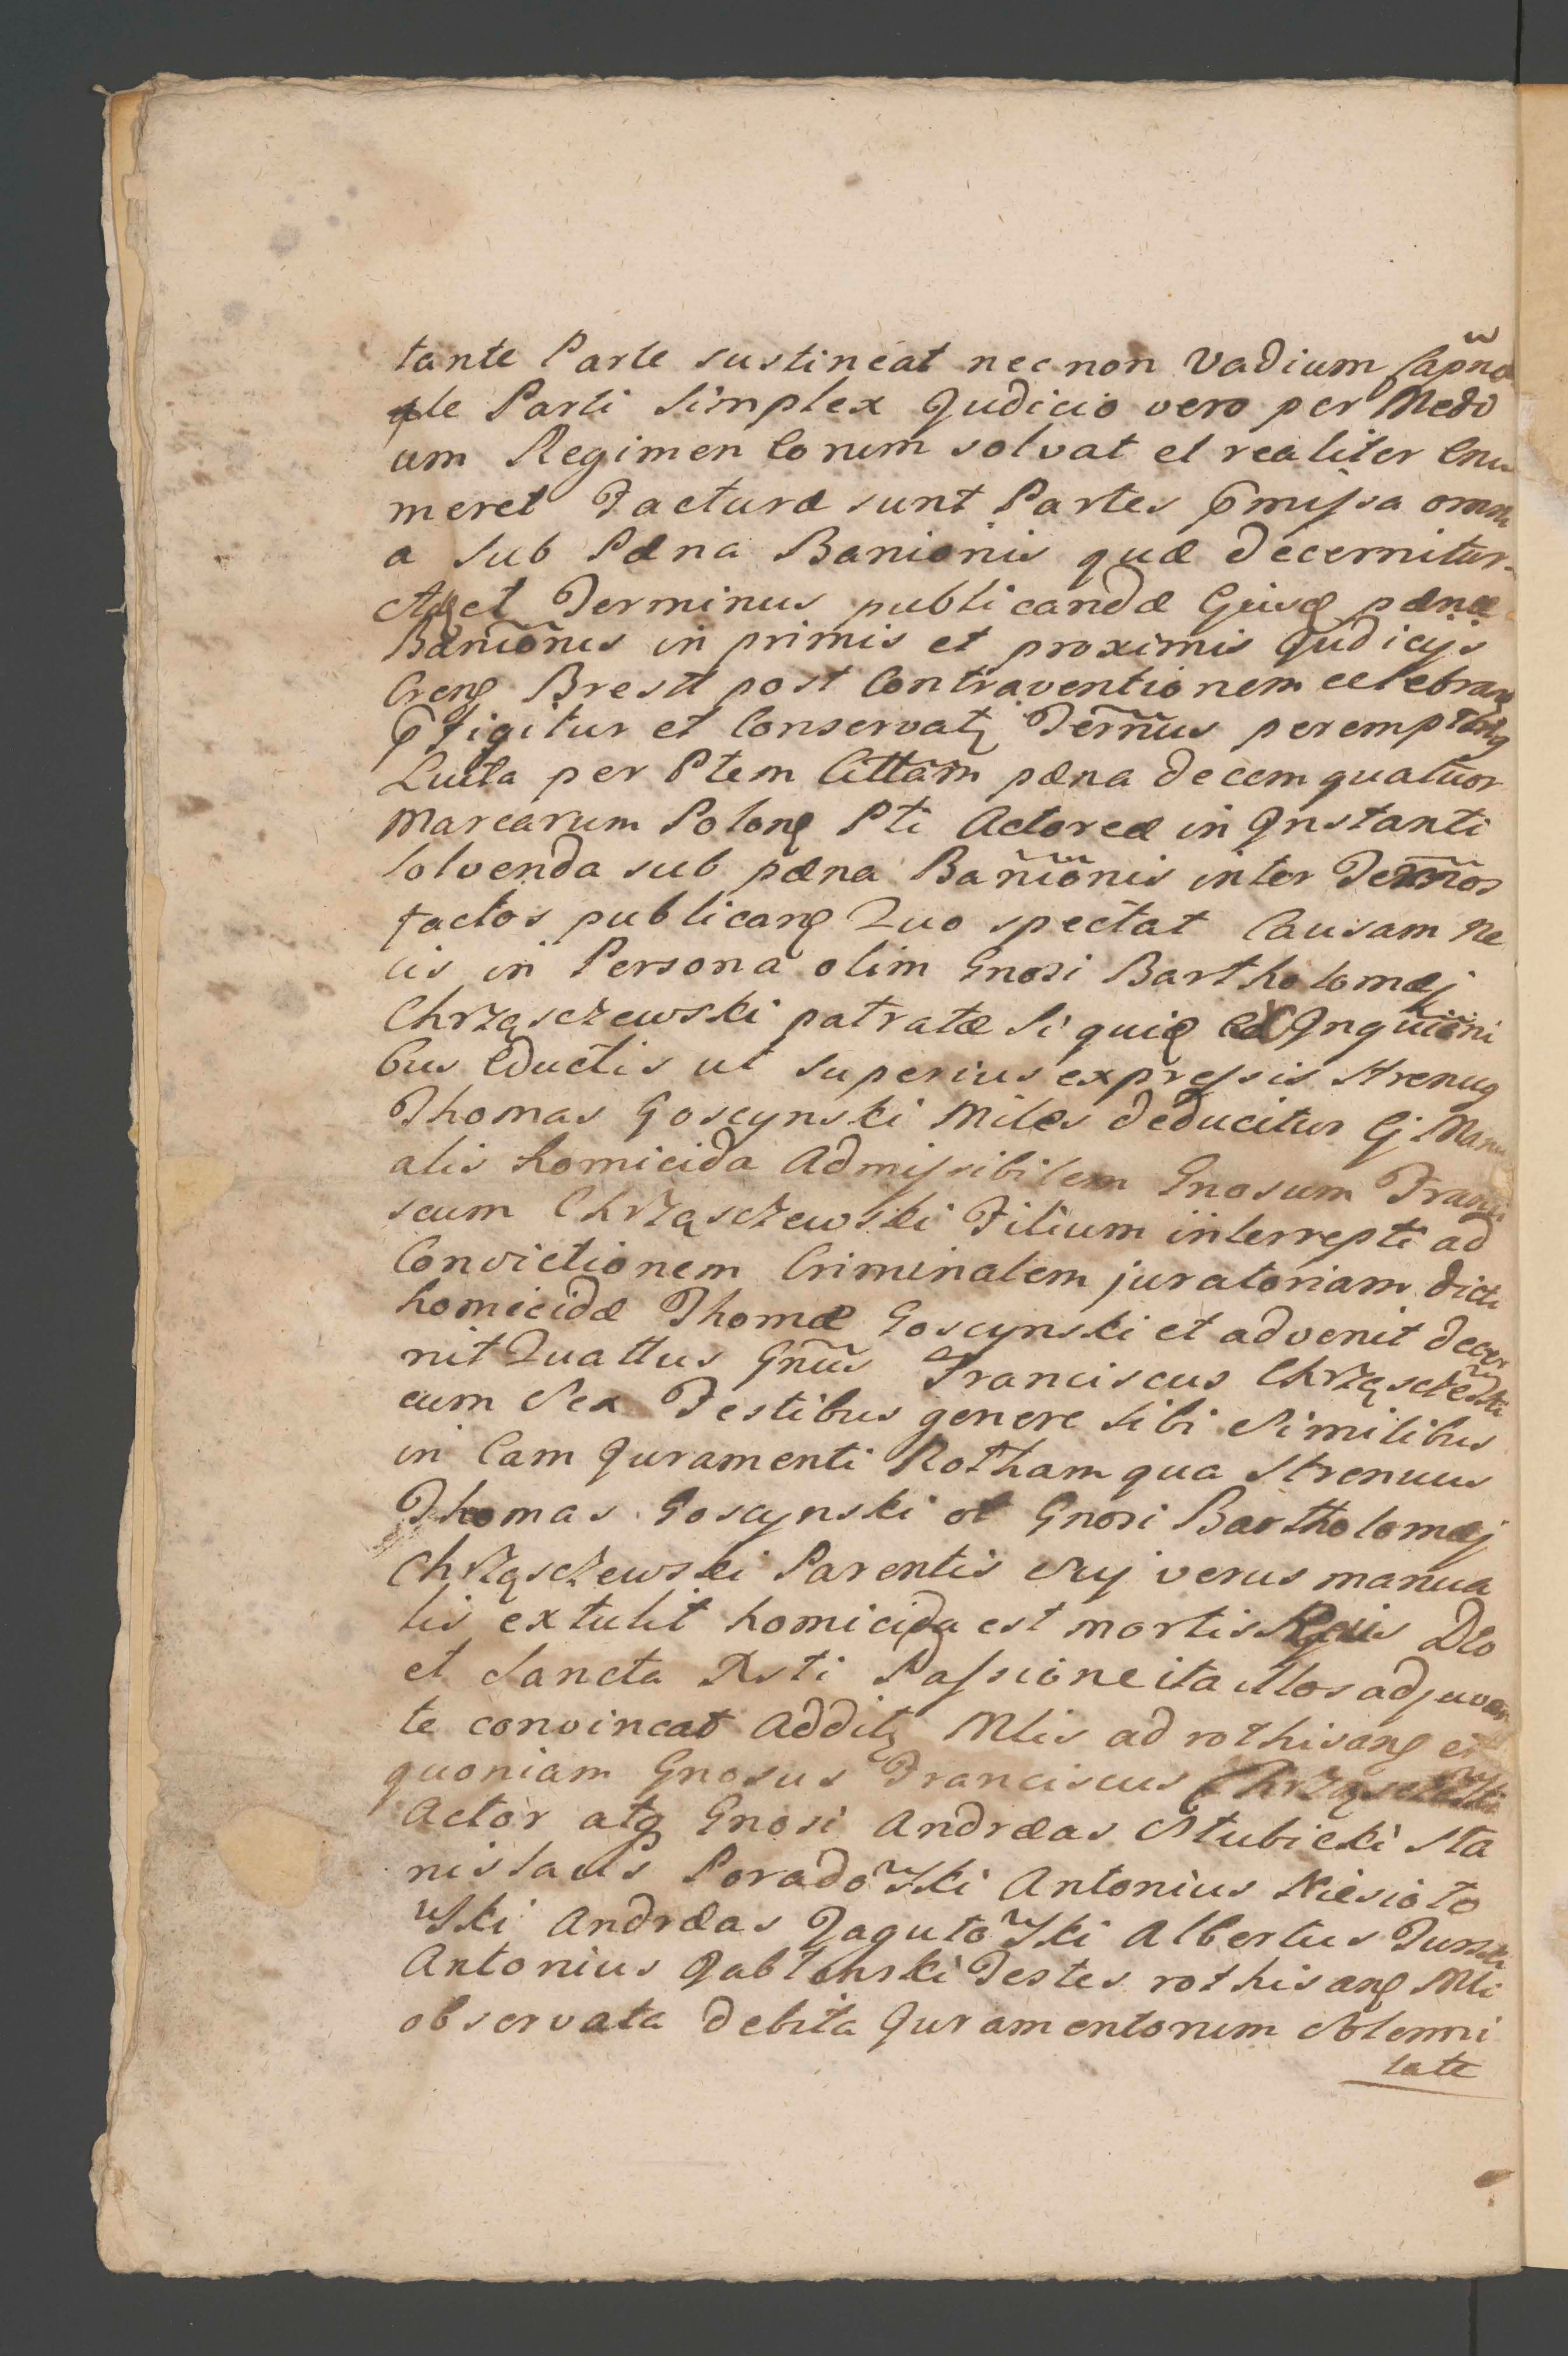 tante Parte sustineat necnon Vadium
Parti Simplex Judicio vero per Medi
um Regimen Eorum solvat et realiter Enu
meret Facturæ sunt Partes Pmissa omni
a sub Pæna Banionis quæ decernitur.
et Terminus publicandæ Ejusq pænæ
Banionis in primis et proximis Judicijs
Creng Brestt post Contraventionem celebran
Pfigitur et Conservatq Termus
Luita per Ptem Cittam pæna decem quatuor
Marcarum Polong Pti Actoreæ in Instanti
Solvenda sub pæna Banionis inter Termos
factos publicang Quo spectat Causam Ne
cis in Persona olim Gnosi Bartholomæj
Chrząsczewski patratæ Si quid Ex Inquiõni
bus Eductis ut superius expressis Strenuq
Thomas Goscynski Miles deducitur Ej Manu
alis homicida Admissibilem Gnosum Franci
scum Chrząsczewski Filium interrepti ad
Convictionem Criminalem juratoriam dicti
homicidæ Thomæ Goscynski et advenit decer
nit Quattus Gnus Franciscus Chrząsczewski
cum Sex Testibus genere sibi Similibus
in Eam Juramenti Rotham qua Strenuus
Thomas Goscynski ol Gnosi Bartholomæj
Chrząsczewski Parentis Sui verus manua
lis extulit homicida est mortis Reus Deo
et Sancta Xsti Passione ita illos adjuvan
te convincat Additq Mlis ad rothisang et
quoniam Gnosus Franciscus Chrząsczewski
Actor atq Gnosi Andræas Stubicki Sta
nislaus Poradowski Antonius Niesioło
wski Andræas Jagutowski Albertus Turski
Antonius Jabłonski Testes rothisang Mli
observata debita Juramentorum Solemni
tate